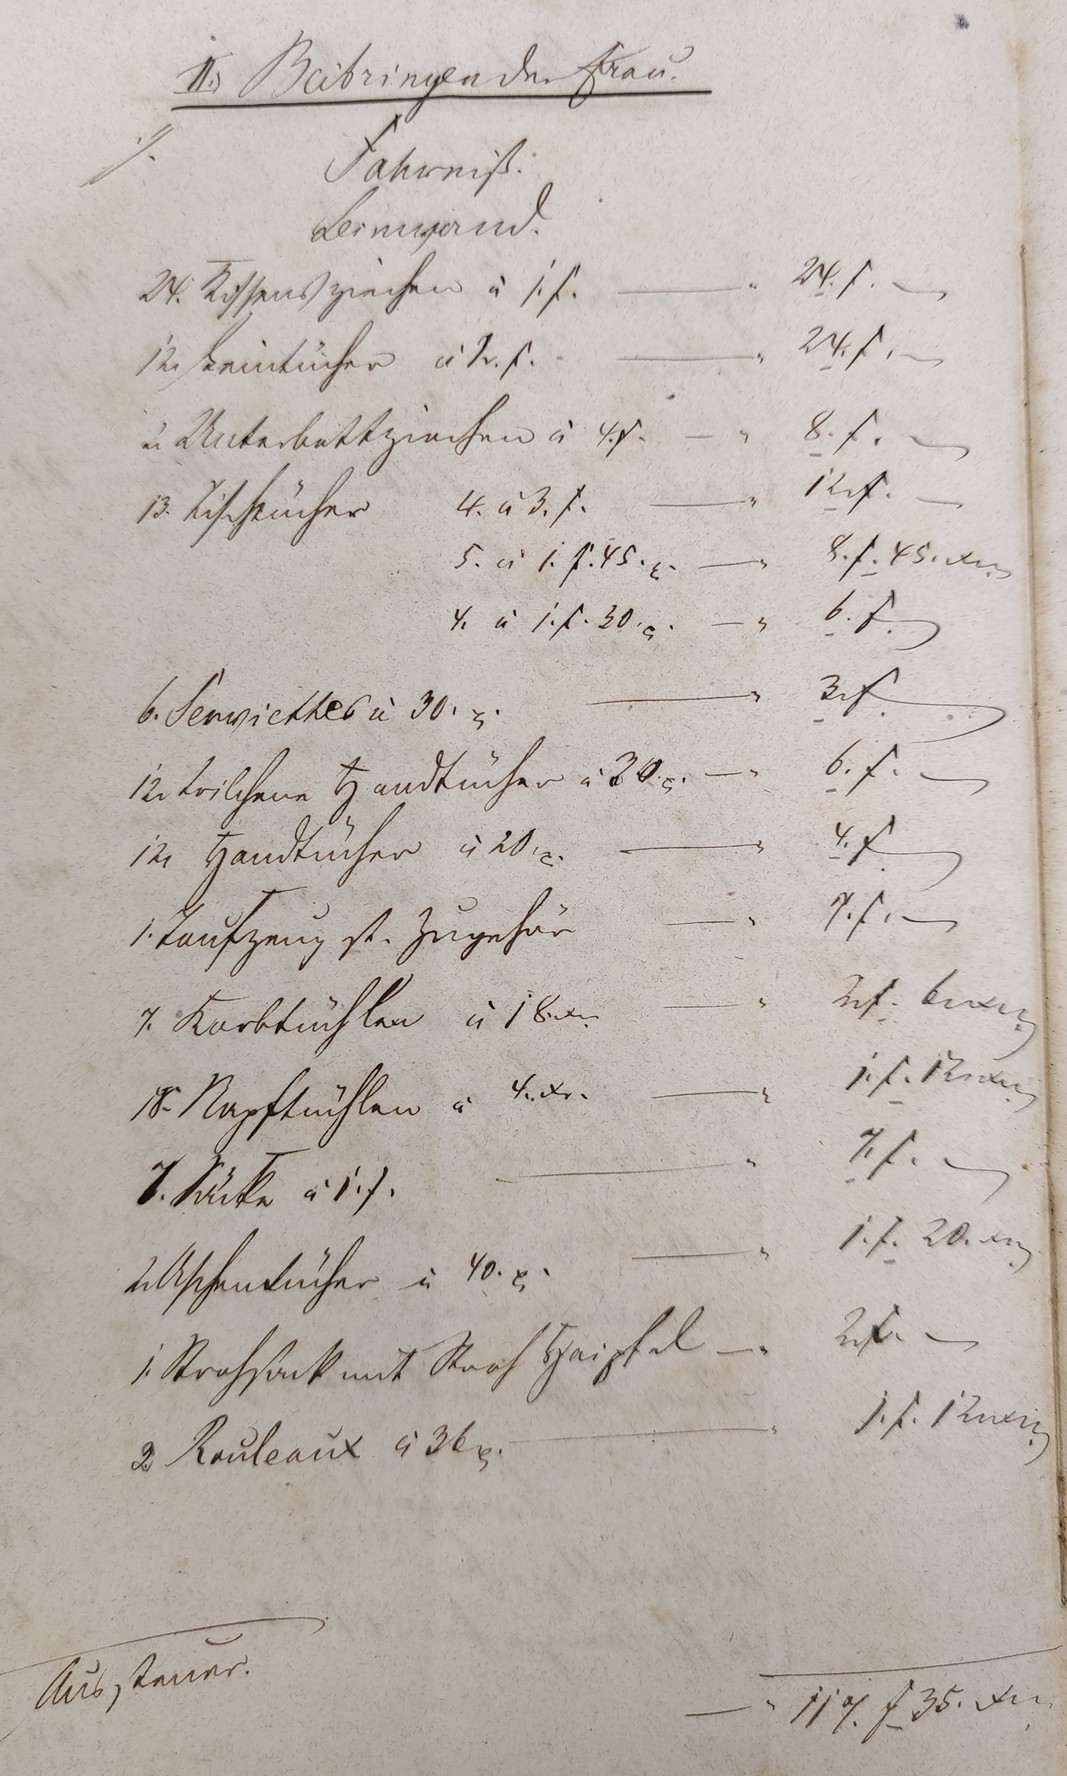 II.) Beibringen der Frau.
1.
Fahrniß.
Leinwand.
24. Kissensziechen à 1. f. — " 24. f. —
12. Leintücher à 2. f. — " 24. f. —
2. Unterbettziechen à 4. f. — " 8. f. —
13. Tischtücher 4. à 3. f. — " 12. f. —
5. à 1. f. 45. x. — " 8. f. 45. xr.
4. à 1. f. 30. x. — " 6. f. —
6. Servietten à 30. x. — " 3. f. —
12. trilchene Handtücher à 30. x. — " 6. f. —
12. Handtücher à 20. x. — " 4. f. —
1. Taufzeug st. Zugehör — " 7. f. —
7. Korbtüchlen à 18. xr. — " 2. f. 6. xr.
18. Napftüchlen à 4. xr. — " 1. f. 12. xr.
7. Säcke à 1. f. — " 7. f. —
2. Aschentücher à 40. x. — " 1. f. 20. xr.
1. Strohsack mit Stroh Haipfel — " 2. f. —
2. Rouleaux à 36 x. — " 1. f. 12. xr.
Aussteuer.
— " 117. f 35. xr.